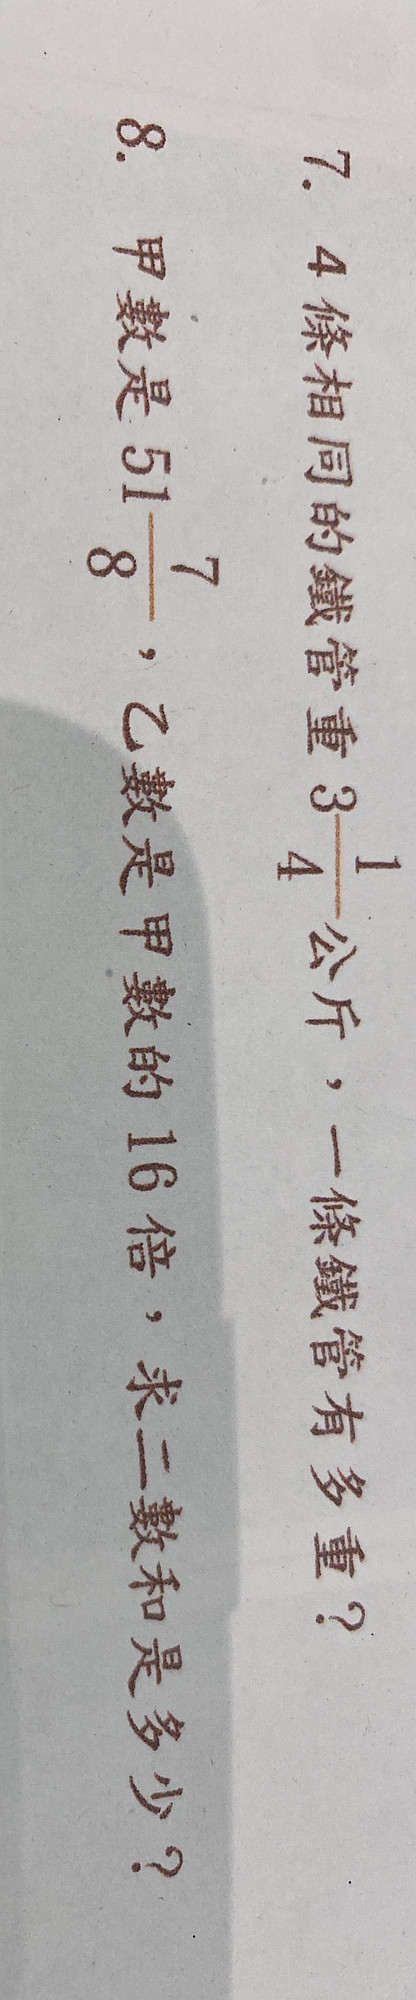 7. 4條相同的鐵管重3 1/4公斤，一條鐵管有多重？
8. 甲數是51 7/8，乙數是甲數的16倍，求二數和是多少？